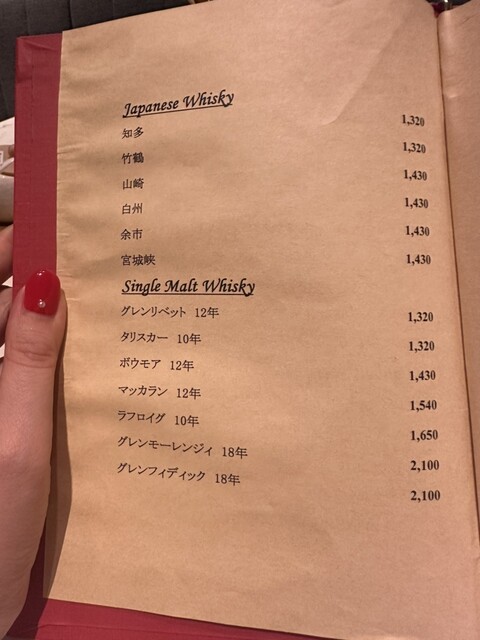 Japanese Whisky
知多 1,320
竹鶴 1,320
山崎 1,430
白州 1,430
余市 1,430
宮城峡 1,430
Single Malt Whisky
グレンリベット 12年 1,320
タリスカー 10年 1,320
ボウモア 12年 1,430
マッカラン 12年 1,540
ラフロイグ 10年 1,650
グレンモーレンジィ 18年 2,100
グレンフィディック 18年 2,100